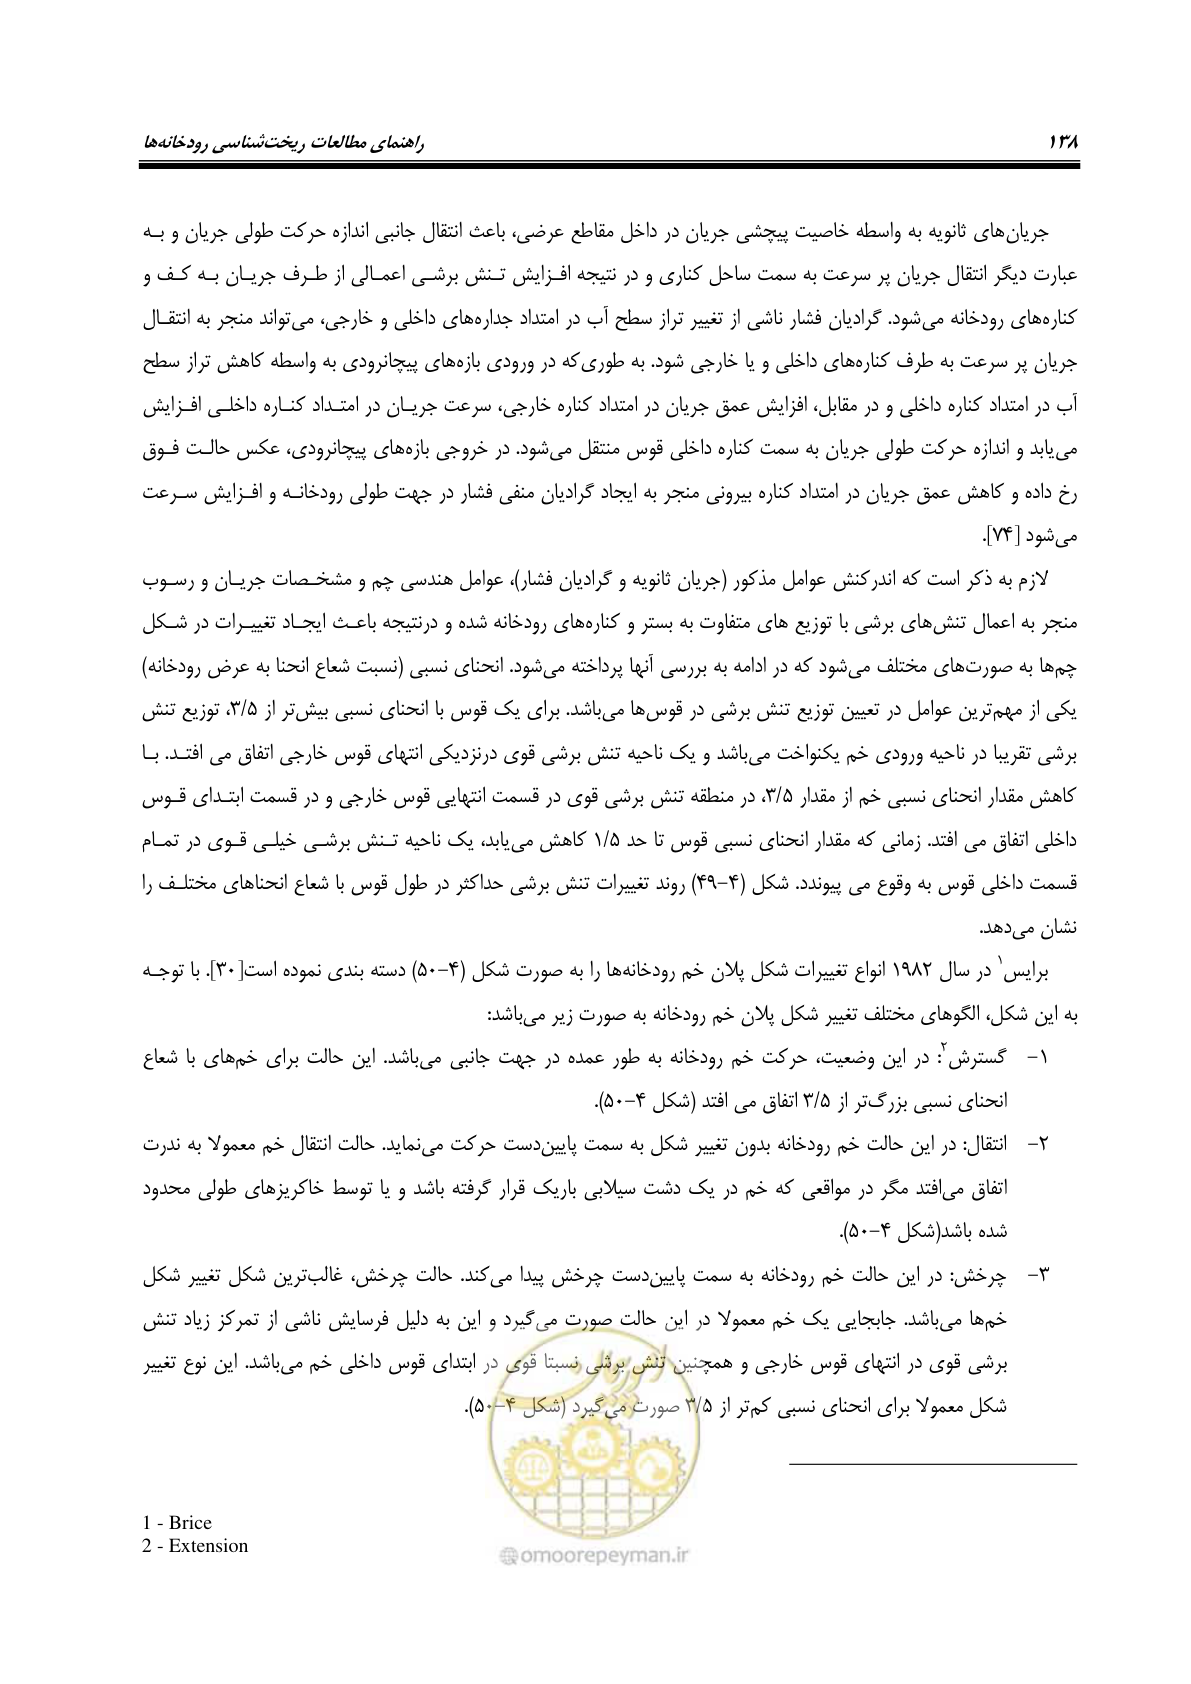 ۱۳۸
راهنمای مطالعات ریخت‌شناسی رودخانه‌ها
جریان‌های ثانویه به واسطه خاصیت پیچشی جریان در داخل مقاطع عرضی، باعث انتقال جانبی اندازه حرکت طولی جریان و بـه
عبارت دیگر انتقال جریان پر سرعت به سمت ساحل کناری و در نتیجه افـزایش تـنش برشـی اعمـالی از طـرف جریـان بـه کـف و
کناره‌های رودخانه می‌شود. گرادیان فشار ناشی از تغییر تراز سطح آب در امتداد جداره‌های داخلی و خارجی، می‌تواند منجر به انتقـال
جریان پر سرعت به طرف کناره‌های داخلی و یا خارجی شود. به طوری‌که در ورودی بازه‌های پیچانرودی به واسطه کاهش تراز سطح
آب در امتداد کناره داخلی و در مقابل، افزایش عمق جریان در امتداد کناره خارجی، سرعت جریـان در امتـداد کنـاره داخلـی افـزایش
می‌یابد و اندازه حرکت طولی جریان به سمت کناره داخلی قوس منتقل می‌شود. در خروجی بازه‌های پیچانرودی، عکس حالـت فـوق
رخ داده و کاهش عمق جریان در امتداد کناره بیرونی منجر به ایجاد گرادیان منفی فشار در جهت طولی رودخانـه و افـزایش سـرعت
می‌شود [۷۴].
لازم به ذکر است که اندرکنش عوامل مذکور (جریان ثانویه و گرادیان فشار)، عوامل هندسی چم و مشخـصات جریـان و رسـوب
منجر به اعمال تنش‌های برشی با توزیع های متفاوت به بستر و کناره‌های رودخانه شده و درنتیجه باعـث ایجـاد تغییـرات در شـکل
چم‌ها به صورت‌های مختلف می‌شود که در ادامه به بررسی آنها پرداخته می‌شود. انحنای نسبی (نسبت شعاع انحنا به عرض رودخانه)
یکی از مهم‌ترین عوامل در تعیین توزیع تنش برشی در قوس‌ها می‌باشد. برای یک قوس با انحنای نسبی بیش‌تر از ۳/۵، توزیع تنش
برشی تقریبا در ناحیه ورودی خم یکنواخت می‌باشد و یک ناحیه تنش برشی قوی درنزدیکی انتهای قوس خارجی اتفاق می افتـد. بـا
کاهش مقدار انحنای نسبی خم از مقدار ۳/۵، در منطقه تنش برشی قوی در قسمت انتهایی قوس خارجی و در قسمت ابتـدای قـوس
داخلی اتفاق می افتد. زمانی که مقدار انحنای نسبی قوس تا حد ۱/۵ کاهش می‌یابد، یک ناحیه تـنش برشـی خیلـی قـوی در تمـام
قسمت داخلی قوس به وقوع می پیوندد. شکل (۴-۴۹) روند تغییرات تنش برشی حداکثر در طول قوس با شعاع انحناهای مختلـف را
نشان می‌دهد.
برایس۱ در سال ۱۹۸۲ انواع تغییرات شکل پلان خم رودخانه‌ها را به صورت شکل (۴-۵۰) دسته بندی نموده است[۳۰]. با توجـه
به این شکل، الگوهای مختلف تغییر شکل پلان خم رودخانه به صورت زیر می‌باشد:
۱- گسترش۲: در این وضعیت، حرکت خم رودخانه به طور عمده در جهت جانبی می‌باشد. این حالت برای خم‌های با شعاع
انحنای نسبی بزرگ‌تر از ۳/۵ اتفاق می افتد (شکل ۴-۵۰).
۲- انتقال: در این حالت خم رودخانه بدون تغییر شکل به سمت پایین‌دست حرکت می‌نماید. حالت انتقال خم معمولا به ندرت
اتفاق می‌افتد مگر در مواقعی که خم در یک دشت سیلابی باریک قرار گرفته باشد و یا توسط خاکریزهای طولی محدود
شده باشد(شکل ۴-۵۰).
۳- چرخش: در این حالت خم رودخانه به سمت پایین‌دست چرخش پیدا می‌کند. حالت چرخش، غالب‌ترین شکل تغییر شکل
خم‌ها می‌باشد. جابجایی یک خم معمولا در این حالت صورت می‌گیرد و این به دلیل فرسایش ناشی از تمرکز زیاد تنش
برشی قوی در انتهای قوس خارجی و همچنین تنش برشی نسبتا قوی در ابتدای قوس داخلی خم می‌باشد. این نوع تغییر
شکل معمولا برای انحنای نسبی کم‌تر از ۳/۵ صورت می‌گیرد (شکل ۴-۵۰).
1 - Brice
2 - Extension
@omoorepeyman.ir